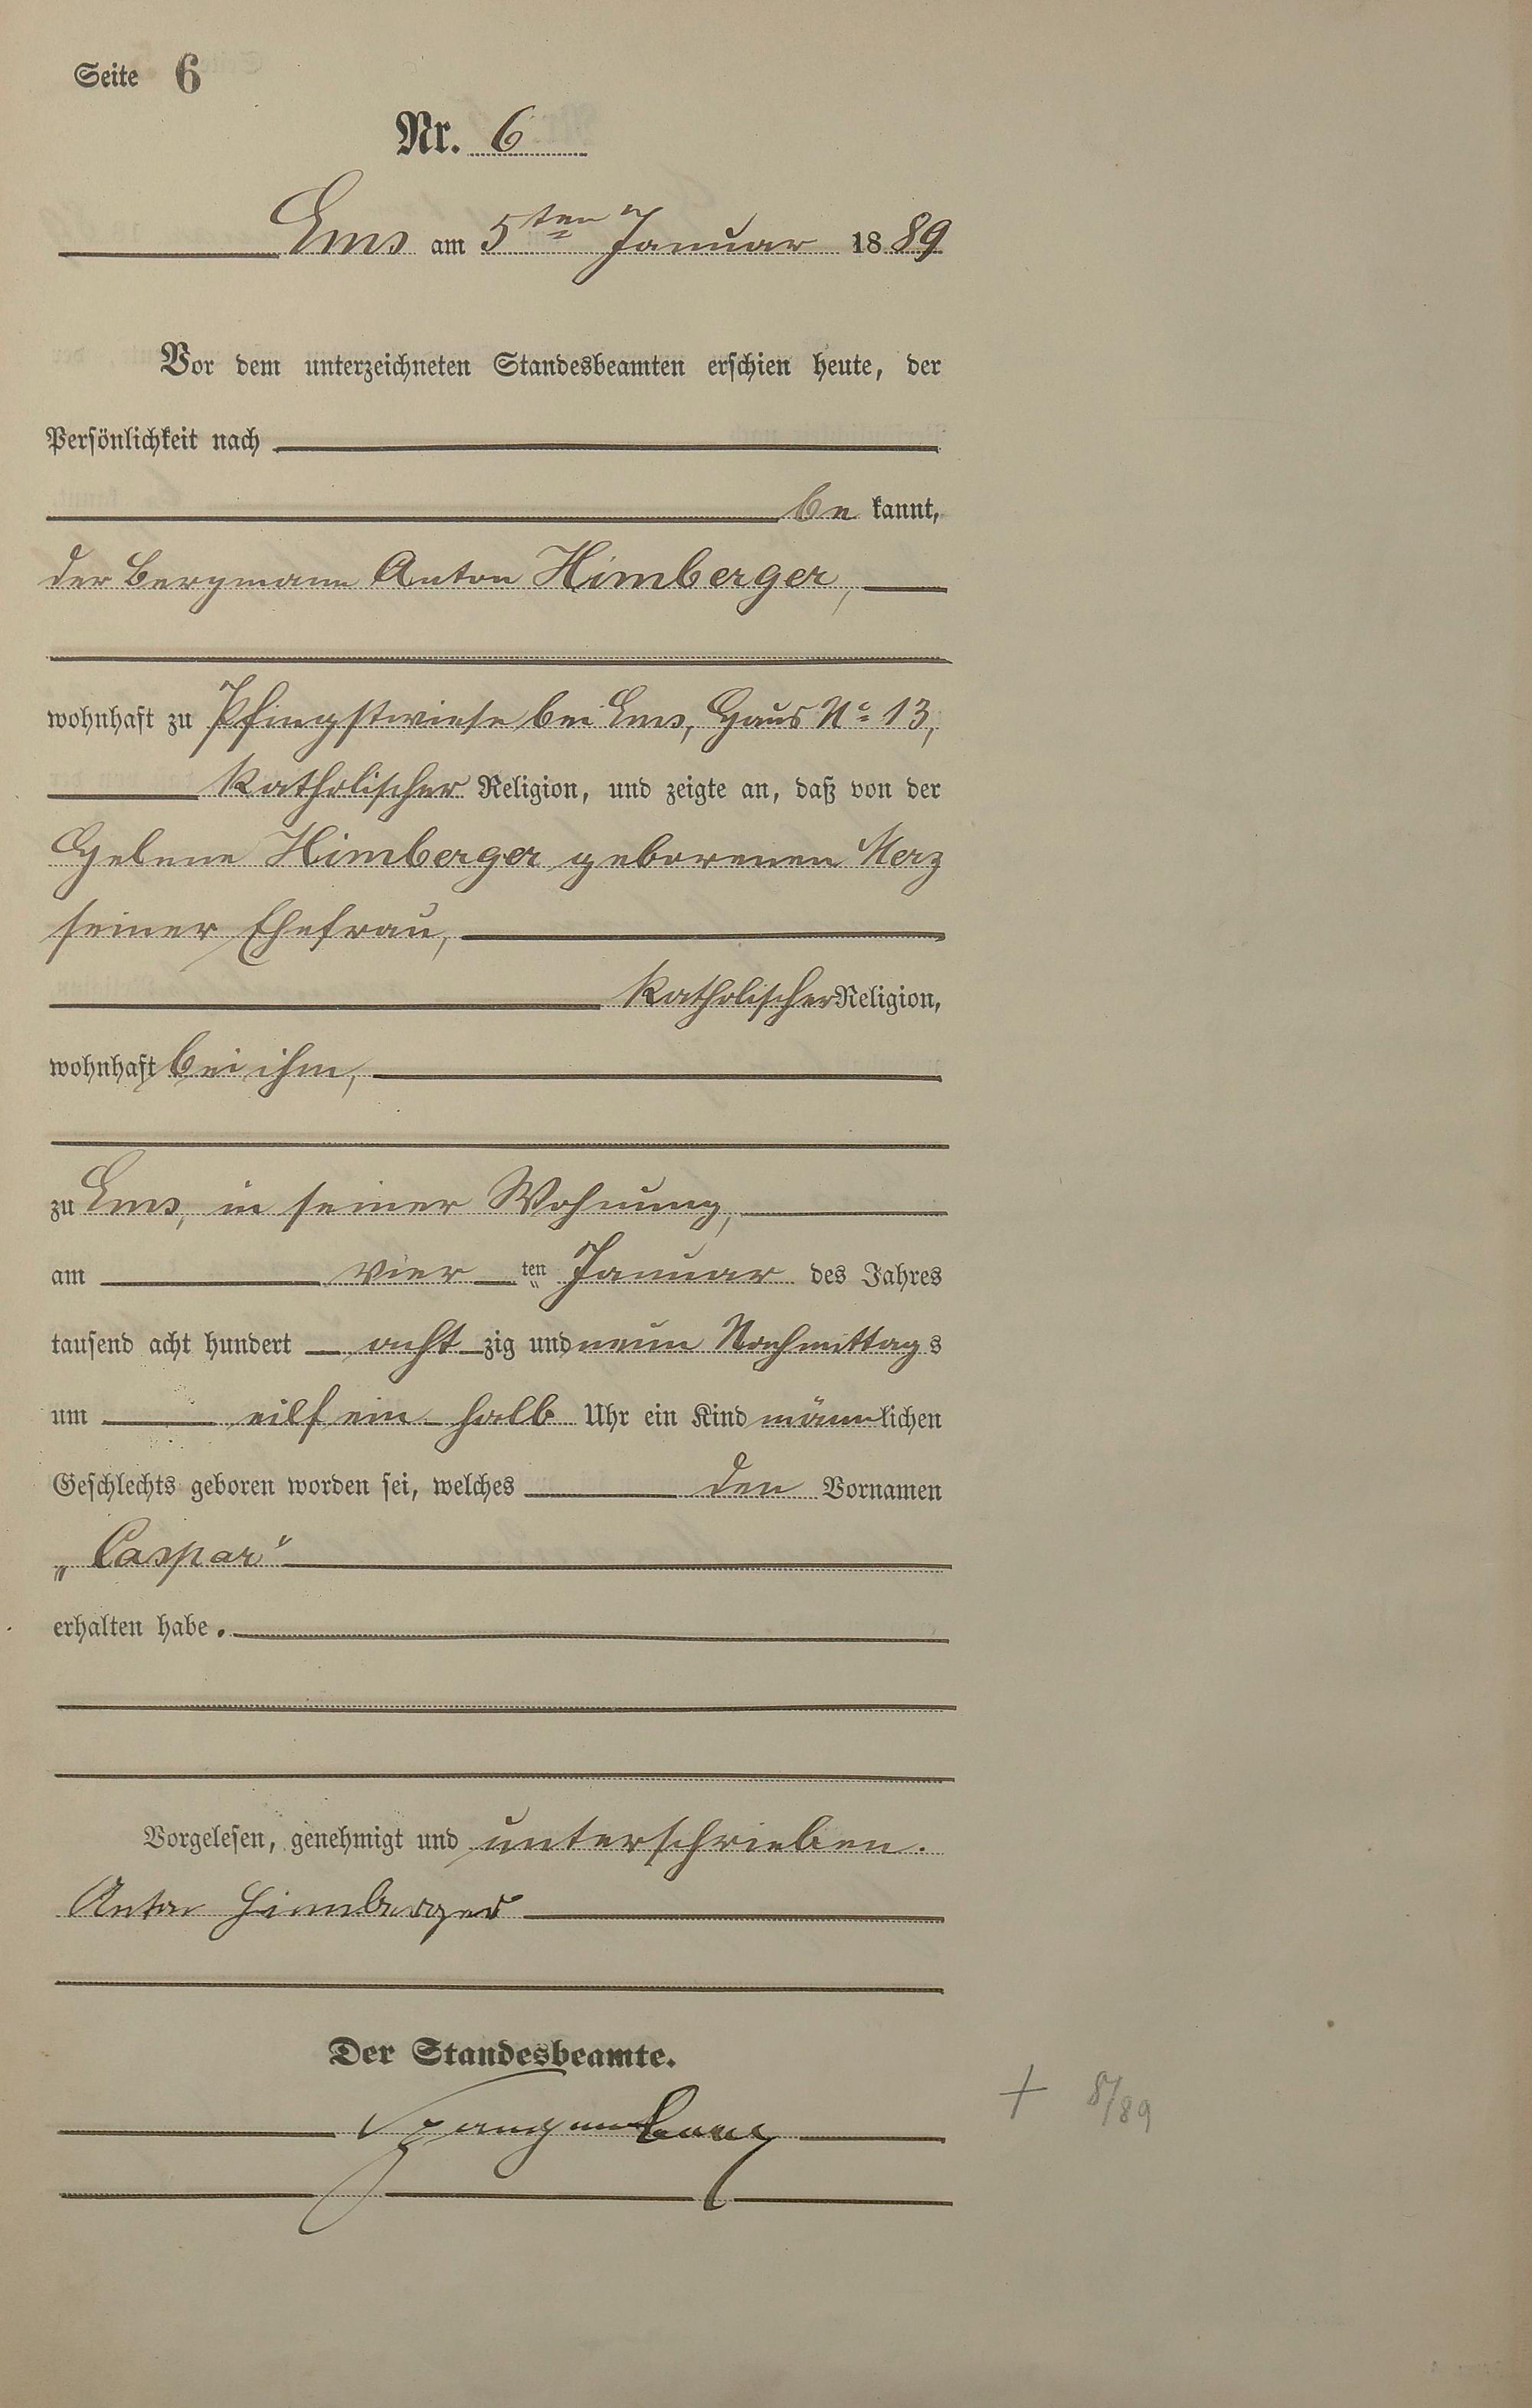 Seite 6
Nr. 6
Ems am 5ten Januar 1889
Vor dem unterzeichneten Standesbeamten erschien heute, der
Persönlichkeit nach
be kannt,
der Bergmann Anton Himberger,
wohnhaft zu Pfingstwiese bei Ems, Haus No 13,
katholischer Religion, und zeigte an, daß von der
Helene Himberger geborenen Merz
seiner Ehefrau,
katholischer Religion,
wohnhaft bei ihm,
zu Ems, in seiner Wohnung,
am vier ten Januar des Jahres
tausend acht hundert acht zig und neun Nachmittags
um eilf ein halb Uhr ein Kind männlichen
Geschlechts geboren worden sei, welches den Vornamen
„Caspar“
erhalten habe.
Vorgelesen, genehmigt und unterschrieben.
Anton Himberger
Der Standesbeamte.
Spangenberg
+ 8/89